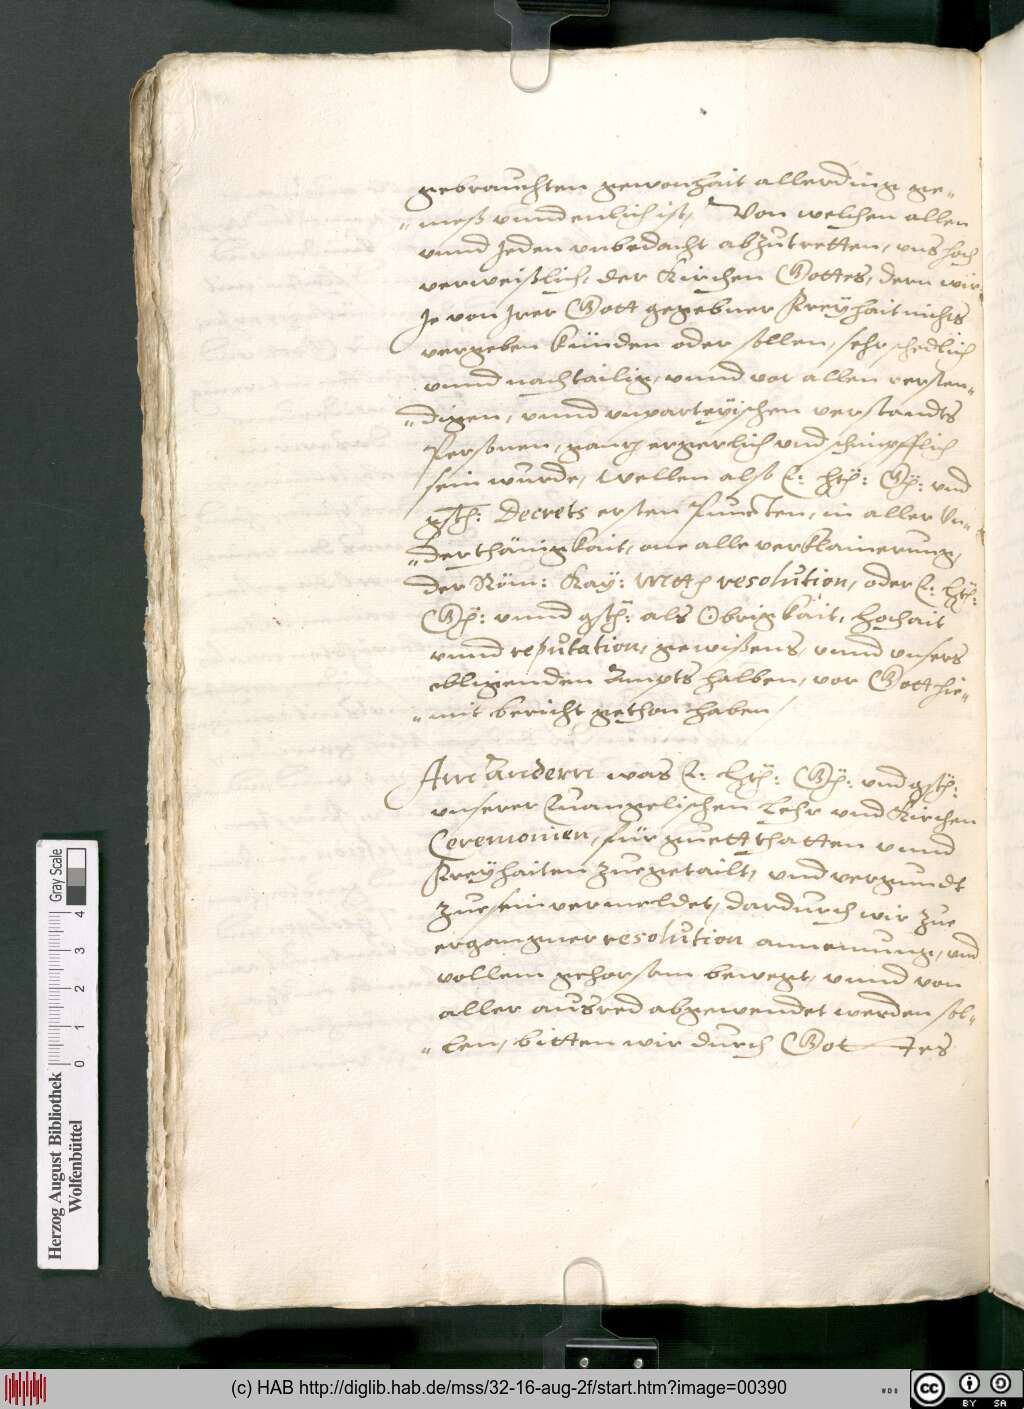 gebrauchten gewonhait allerding ge„
„ meß vnnd enlich ist, Von welchen allen
vnnd Jeden vnbedacht abzutretten, vns hoch
verweißlich, der Kirchen Gottes, dern wir
Je von Irer Gott gegebner Freyhait nichts
vergeben künden oder sollen, sehr schedlich
vnnd nachtailig, vnnd vor allen versten„
„ digen, vnnd vnparteyischen verstandts
Personen, gantz ergerlich vnd schimpfflich
sein wurde, Wellen also E: hrl: G: vnd
gst: Decrets ersten Puncten, in aller Vn„
„ derthänigkait, one alle verklainerung,
der Röm: Kay: Mtt resolution, oder E: hrl:
G: vnnd gst: als Obrigkait, hochait
vnnd reputation, gewißens, vnnd vnsers
obligenden Ampts halben, vor Gott hie„
„ mit bericht gethon haben /
Am Andern was E: hrl: G: vnd gst:
vnserer Euangelischen Lehr vnd Kirchen
Ceremonien, für guettthatten vnnd
Freyhaiten zuegetailt, vnd vergundt
zue sein vermeldet, dardurch wir zue
ergangner resolution annemung, vnd
vollem gehorsam bewegt, vnnd von
aller ausred abgewendet werden sol„
„ len, bitten wir durch Gottes
Herzog August Bibliothek
Wolfenbüttel
0 1 2 3 4
Gray Scale
(c) HAB http://diglib.hab.de/mss/32-16-aug-2f/start.htm?image=00390
WDB
CC BY SA